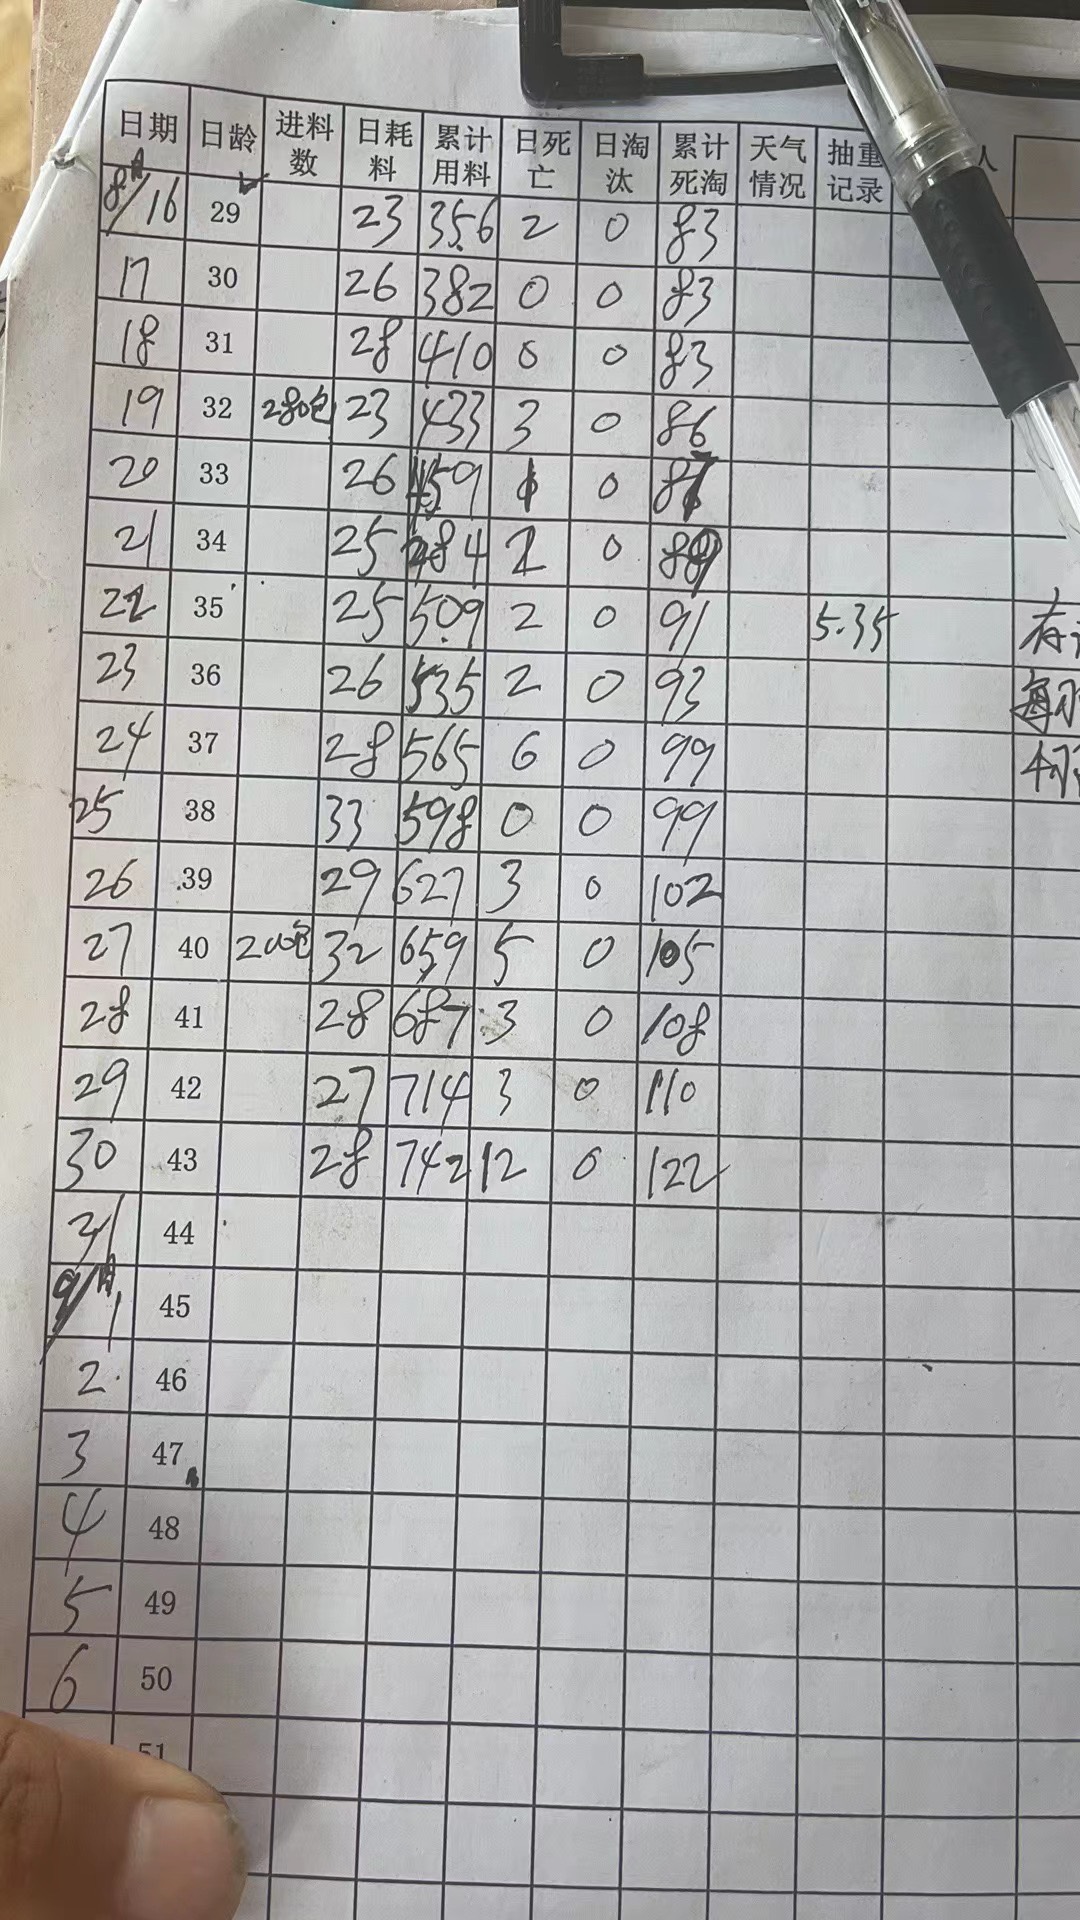 日期 日龄 进料数 日耗料 累计用料 日死亡 日淘汰 累计死淘 天气情况 抽重记录 人
8月/16 29 23 356 2 0 83
17 30 26 382 0 0 83
18 31 28 410 0 0 83
19 32 280包 23 433 3 0 86
20 33 26 459 1 0 87
21 34 25 484 2 0 89
22 35 25 509 2 0 91 5.35 存
23 36 26 535 2 0 93 每
24 37 28 565 6 0 99
25 38 33 598 0 0 99
26 39 29 627 3 0 102
27 40 200包 32 659 5 0 105
28 41 28 687 3 0 108
29 42 27 714 3 0 110
30 43 28 742 12 0 122
31 44
9/月1 45
2 46
3 47
4 48
5 49
6 50
51